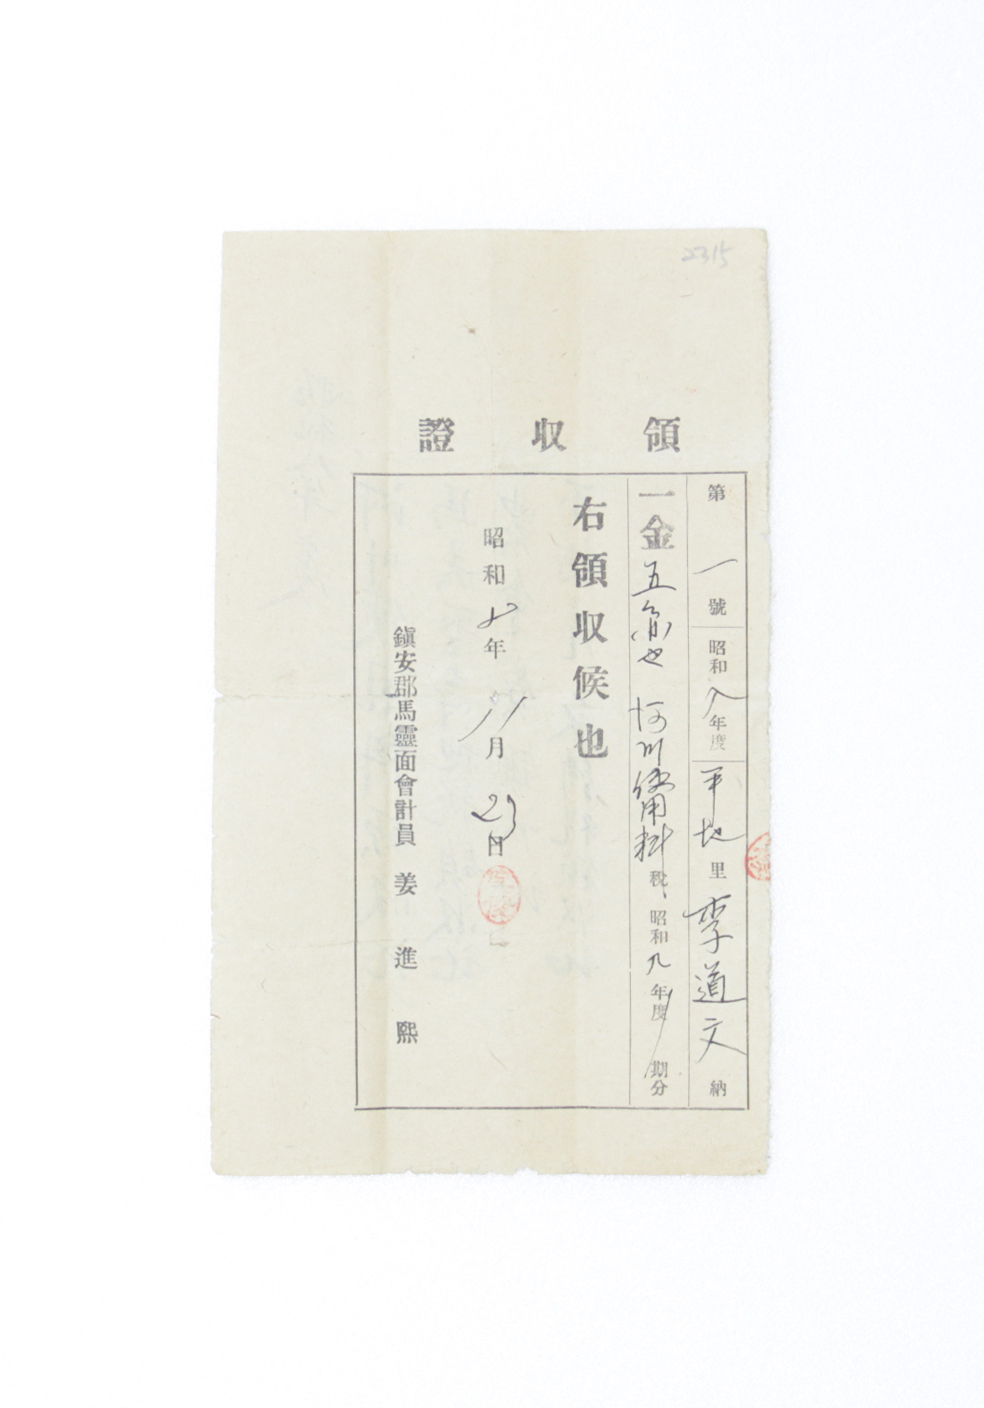 2315
領收證
第一號 昭和八年度 平地里 李道文 納
一金五 也 河川使用料稅、昭和九年度 期分
右領收候也
昭和 年11月23日
鎭安郡馬靈面會計員 姜進熙